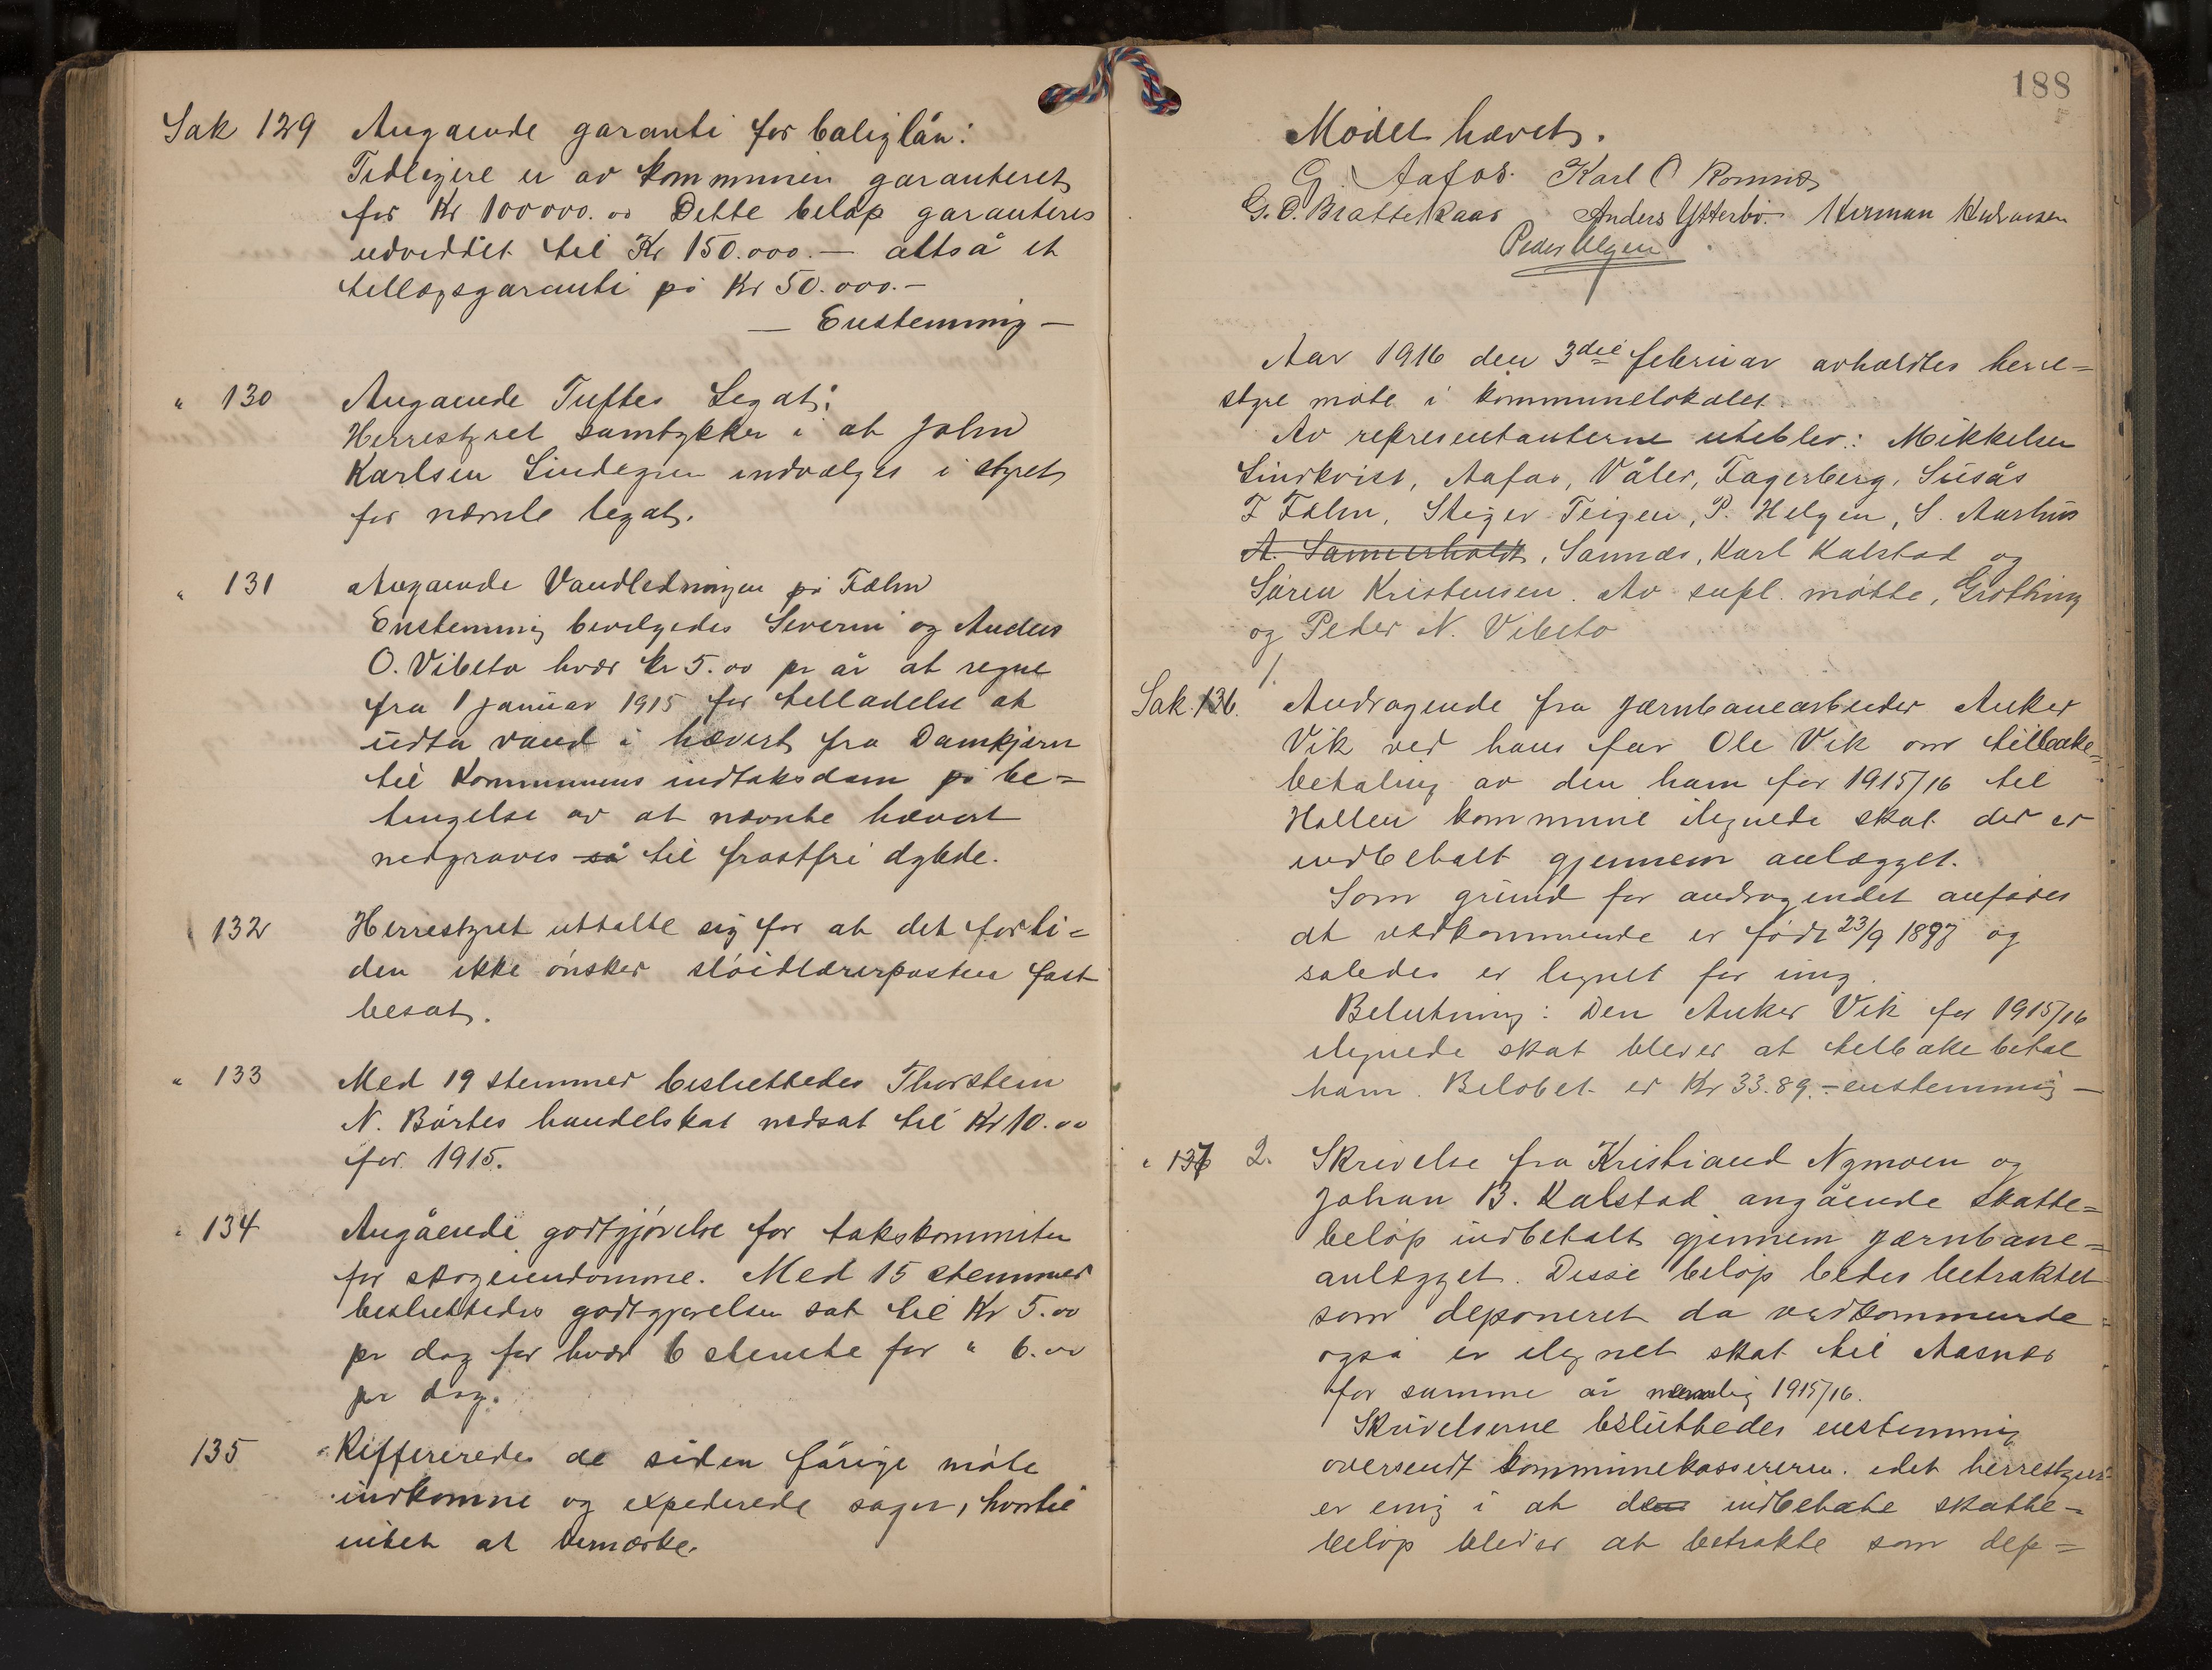 Sak 129 Angaende garanti for boliglån:
Tidligere er av kommunen garanteret
for Kr 100000.00 Dette beløp garanteres
udvidet til Kr 150.000.— altså et
tillægsgaranti på Kr 50.000.—
— Enstemmig —
" 130 Angaende Tuftes Legat:
Herrestyret samtykker i at John
Karlsen Lindegren indvælges i styret
for nævnte legat.
" 131 Angaende Vandledningen på Fæhn
Enstemmig bevilgedes Severin og Anders
O. Vibeto hver kr 5.00 pr år at regne
fra 1 januar 1915 for tilladelse at
udta vand i hævert fra Damkjærn
til Kommunens indtaksdam på be=
tingelse av at nævnte hævert
nedgraves så til frostfri dybde.
" 132 Herrestyret uttalte sig for at det forti=
den ikke ønsker sløidlærerposten fast
besat.
" 133 Med 19 stemmer besluttedes Thorstein
N. Børtes handelskat nedsat til Kr 10.00
for 1915.
" 134 Angående godtgjørelse for takskommiten
for skogeiendomme. Med 15 stemmer
besluttedes godtgjørelsen sat til Kr 5.00
pr dag for hver 6 stemte for " 6.00
pr dag.
135 Reffereredes de siden førige møte
indkomne og expederede sager, hvortil
intet at bemærke.
188
Mødet hævet.
G. Aafos. Karl O Romnes
G.O. Brattekaas Anders Ytterbø. Herman Halvorsen
Peder Helgen
Aar 1916 den 3die februar avholdtes herre=
styre møte i kommunelokalet.
Av representanterne uteblev: Mikkelsen
Lindkvist, Aafos, Våler, Fagerberg, Susås
F Fæhn, Steger Teigen, P. Helgen, S. Aarhus
A. Sannerholdt, Sannæs, Karl Kalstad og
Søren Kristensen. Av supl. møtte, Grothing
og Peder N. Vibeto
1.
Sak. 136. Andragende fra jærnbanearbeider Anker
Vik ved hans far Ole Vik om tilbake=
betaling av den ham for 1915/16 til
Hollen kommune ilignede skat der er
indbetalt gjennem anlægget.
Som grund for andragendet anføres
at vedkommende er født 23/9 1897 og
således er lignet for ung.
Belutning: Den Anker Vik for 1915/16
ilignede skat bliver at tilbakebetal
ham. Beløbet er Kr 33.89.- enstemmig —
" 137 2. Skrivelse fra Kristiand Nymoen og
Johan B. Kalstad angående skatte=
beløp indbetalt gjennem jærnbane=
anlægget. Disse beløp bedes betraktet
som deponeret da vedkommende
også er ilignet skat til Aasnes
for samme år nemlig 1915/16.
Skrivelserne besluttedes enstemmig
oversendt kommunekassereren. idet herrestyret
er enig i at den indbetalte skatte=
beløp bliver at betrakte som dep=